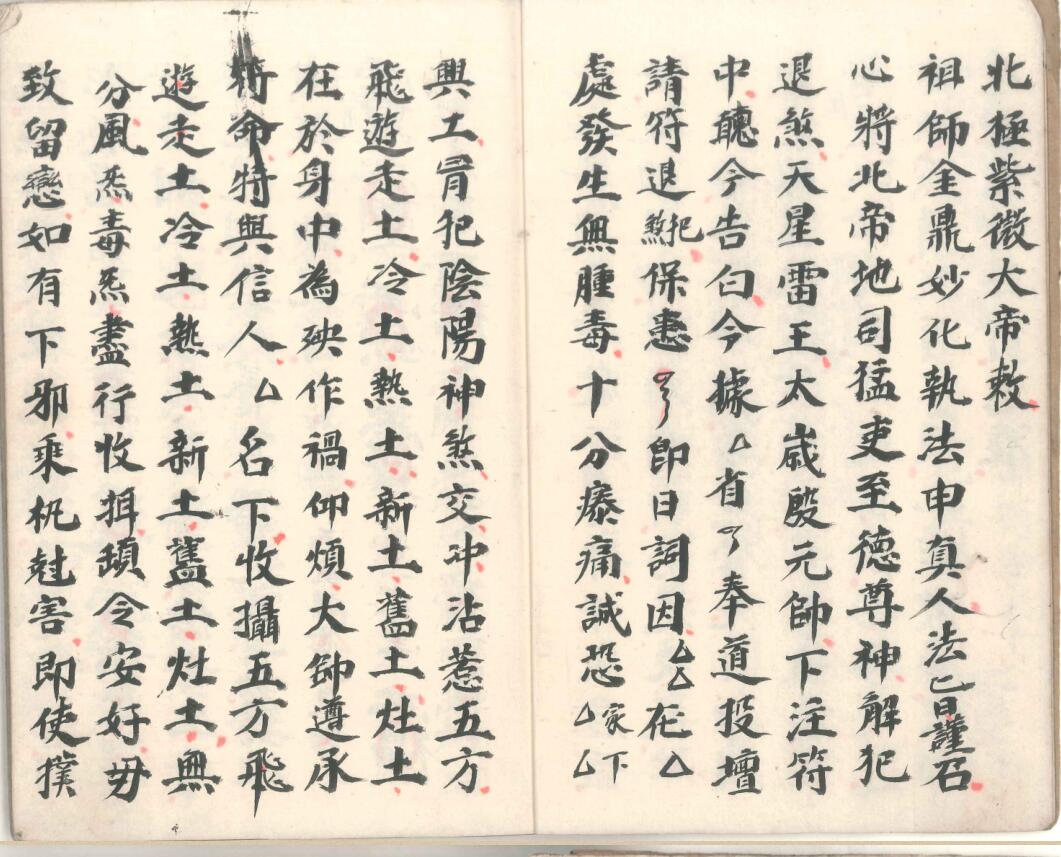 北極紫微大帝敕
祖師金鼎妙化執法申真人法㔾日謹召
心將北帝地司猛吏至德尊神解犯
退煞天星雷王太嵗殷元帥下注符
中聽今告曰今據厶省奉道投壇
請符退煞犯保患即日詞因厶厶在厶
處發生無腫毒十分療痛誠恐厶家厶下
興工冐犯陰陽神煞交冲沾惹五方
飛遊走土冷土熱土新土舊土灶土
在於身中為殃作禍仰煩大帥遵承
符命特與信人厶名下收攝五方飛
遊走土冷土熱土新土舊土灶土無
分風炁毒炁盡行收捐頭令安好毋
致留戀如有下邪乘机尅害即使撲